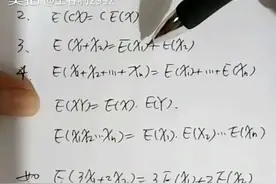 2. E(CX)= CE(X)
3. E(X₁+X₂)=E(X₁)+E(X₂)
4. E(X₁+X₂+…+Xn)=E(X₁)+…+E(Xn)
E(XY)=E(X)·E(Y).
E(X₁X₂…Xn)=E(X₁)·E(X₂)…E(Xn)
E(3X₁+2X₂)=3E(X₁)+2E(X₂)